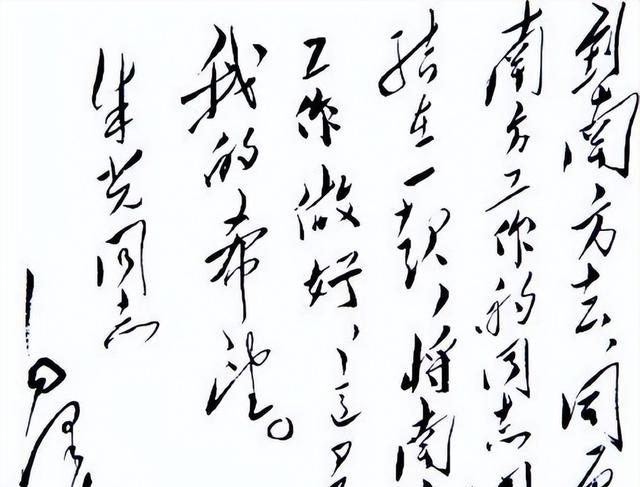 到南方去、同原
南方工作的同志团
结在一起,将南
工作做好,这是
我的希望。
朱光同志
毛泽